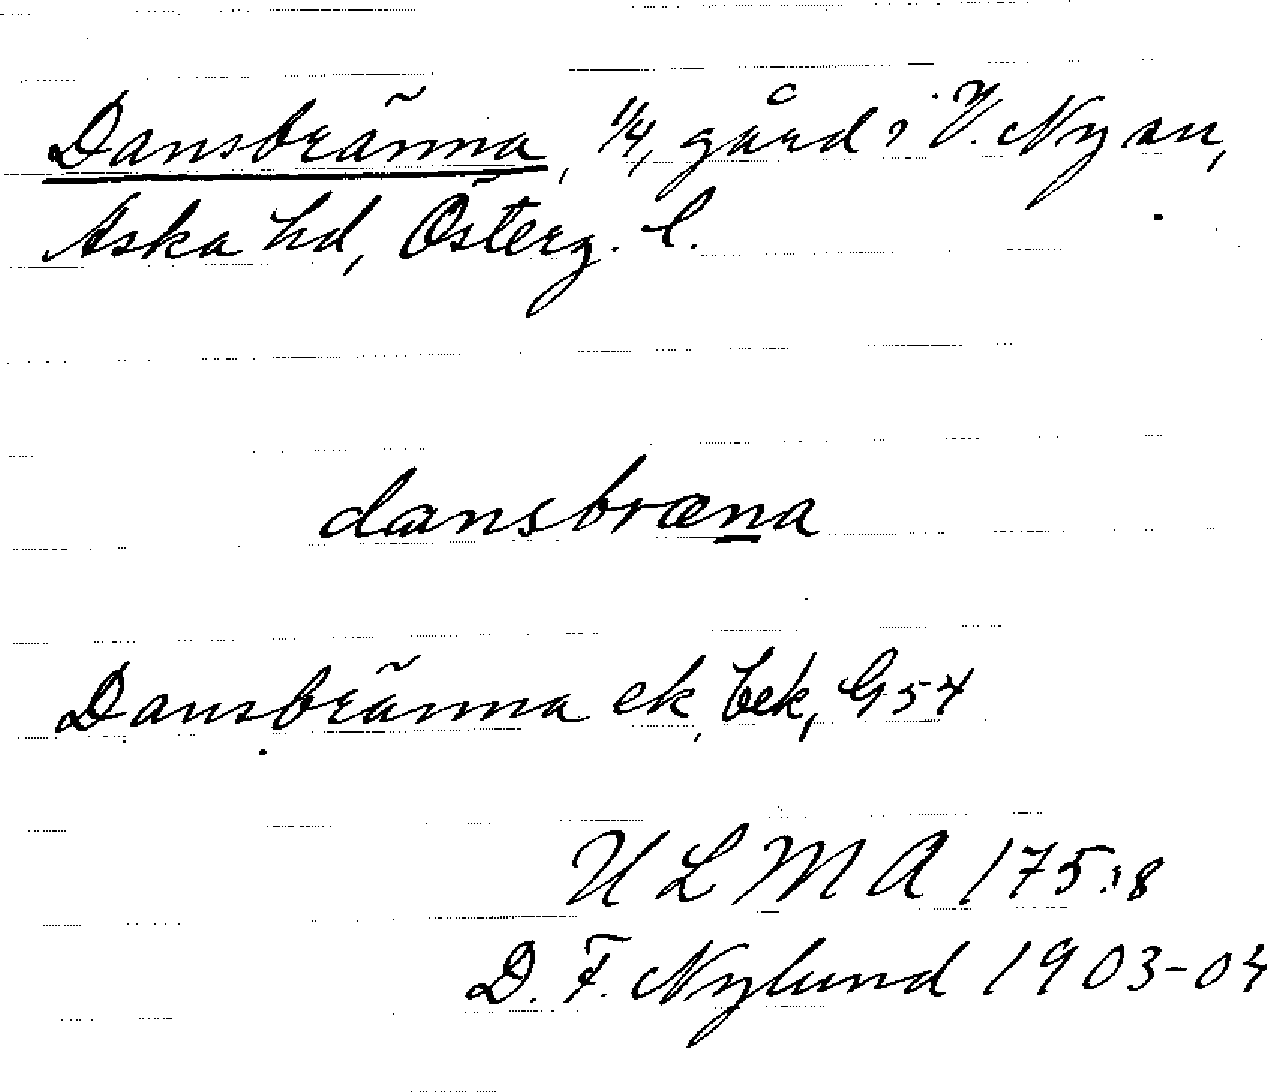 Dansbränna, 1/4, gård i V. Ny sn,
Aska hd, Österg. l.
dansbræna
Dansbränna ek bek, G54
ULMA 175:18
D. F. Nylund 1903-04